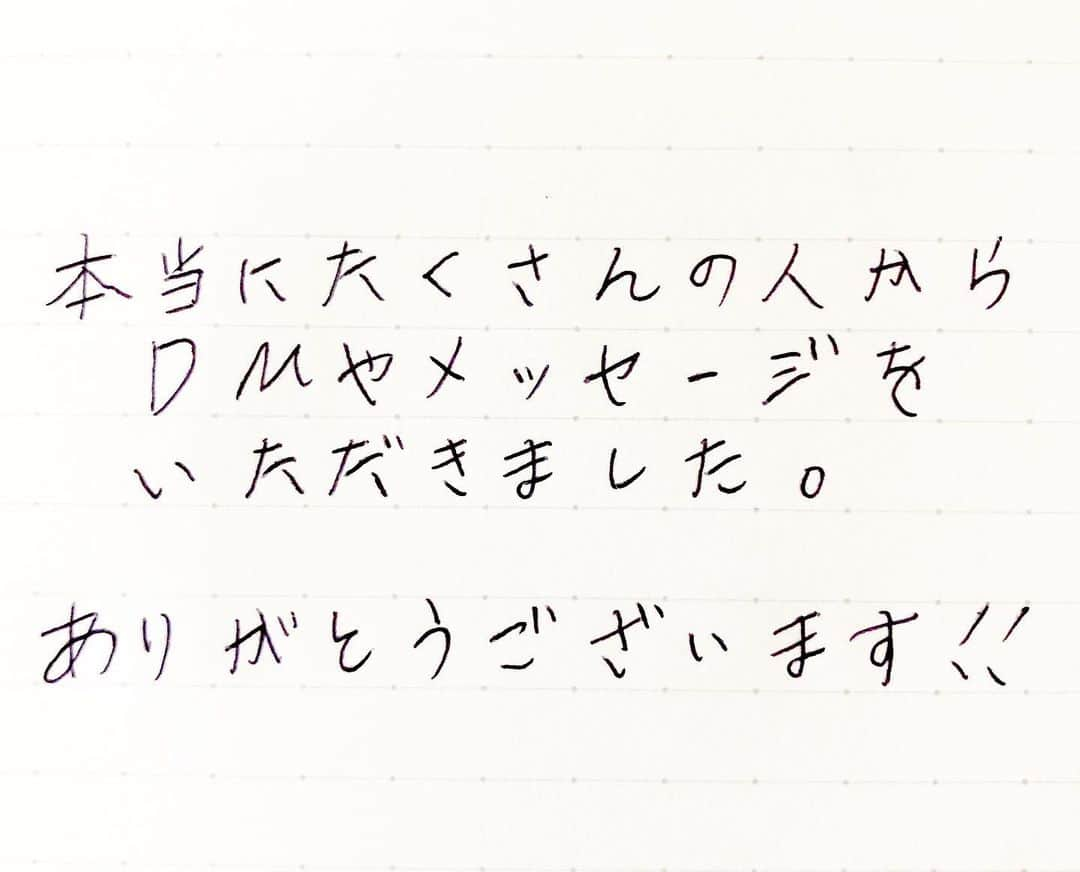 本当にたくさんの人から
DMやメッセージを
いただきました。
ありがとうございます!!